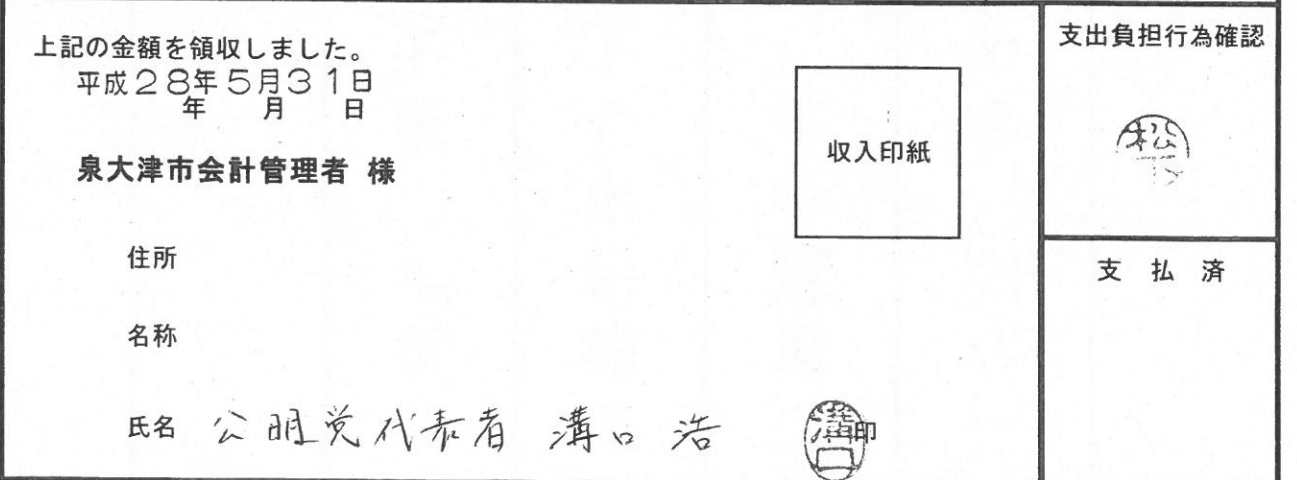 上記の金額を領収しました。
平成28年5月31日
年 月 日
泉大津市会計管理者 様
収入印紙
住所
名称
氏名 公明党代表者 溝口 浩 溝口 印
支出負担行為確認
松下
支 払 済